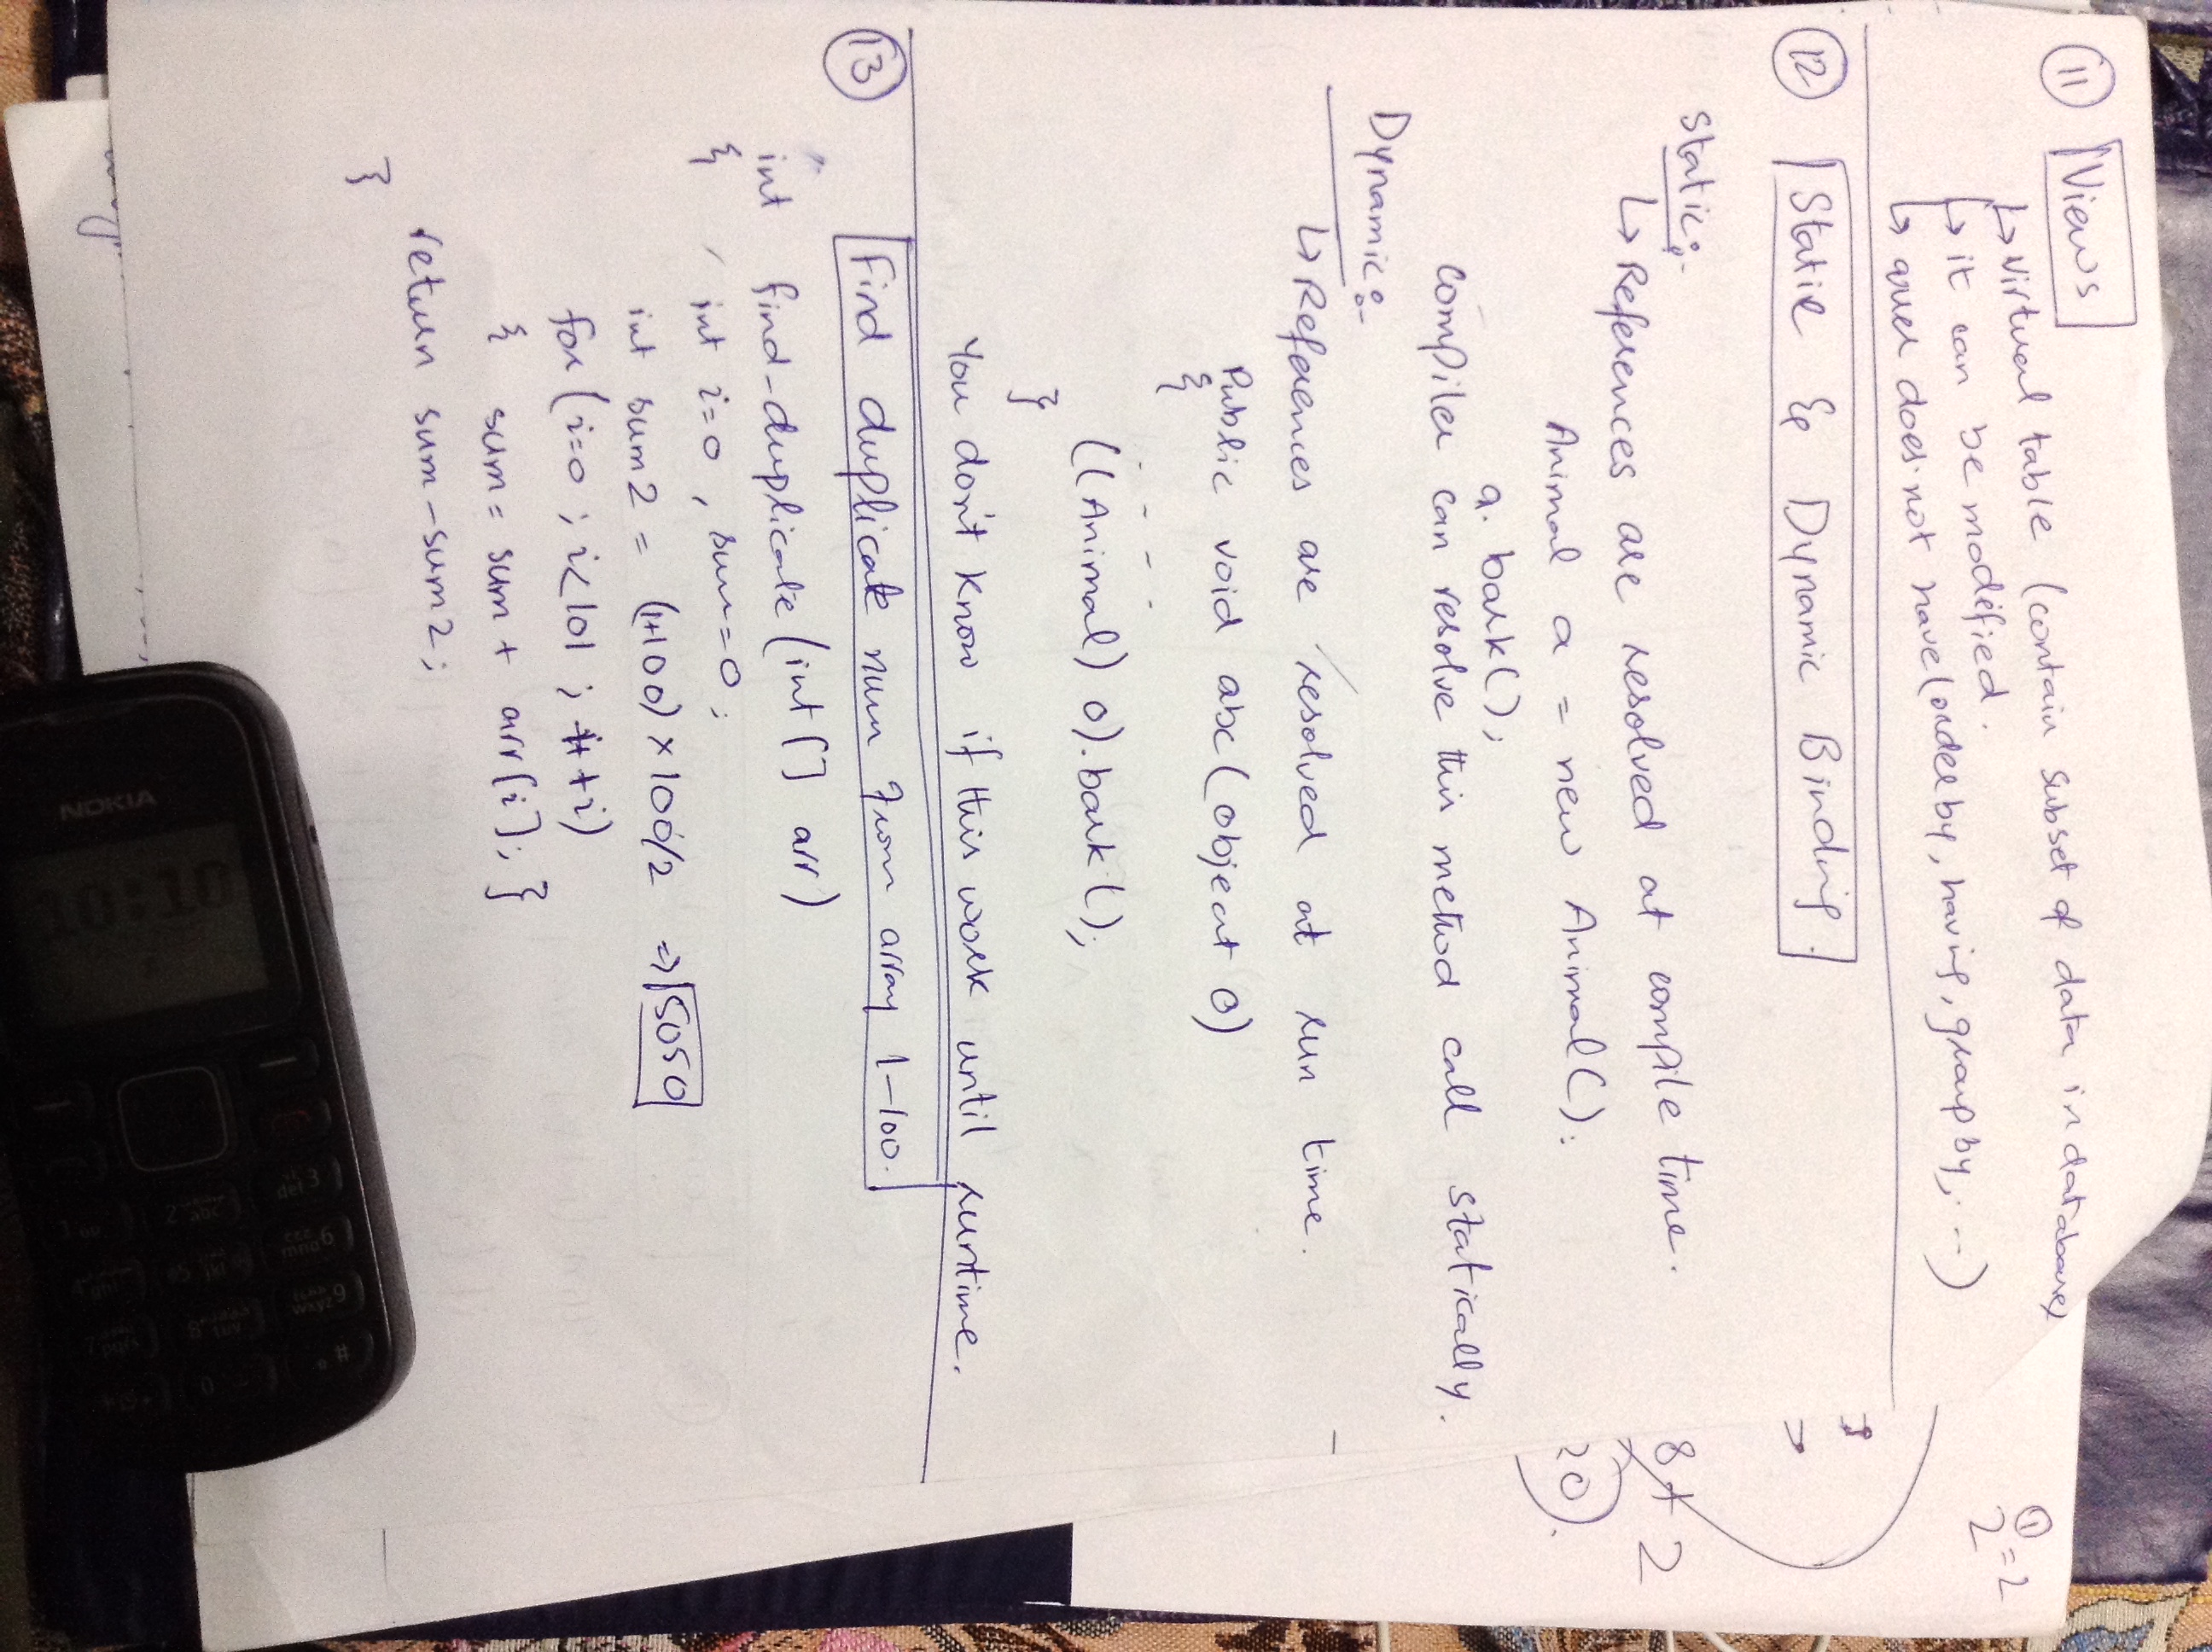 11 Views
↳ Virtual table (contain subset of data in database)
↳ it can be modified.
↳ does not have (order by, having, group by, ...)
12 Static & Dynamic Binding.
Static:-
↳ References are resolved at compile time.
Animal a = new Animal();
a. bark();
Compiler can resolve this method call statically.
Dynamic:-
↳ References are resolved at run time.
Public void abc (object o)
{
- - - -
((Animal) o). bark ();
}
You don't know if this work until runtime.
13 Find duplicate num from array 1-100.
int find-duplicate (int [] arr)
{
int i=0, sum=0;
int sum2 = (1+100) × 100/2 ⇒ 5050
for (i=0 ; i<101 ; ++i)
{ sum = sum + arr[i]; }
return sum-sum2;
}
1
2 = 2
}
>
8 + 2
20).
NOKIA
10:10